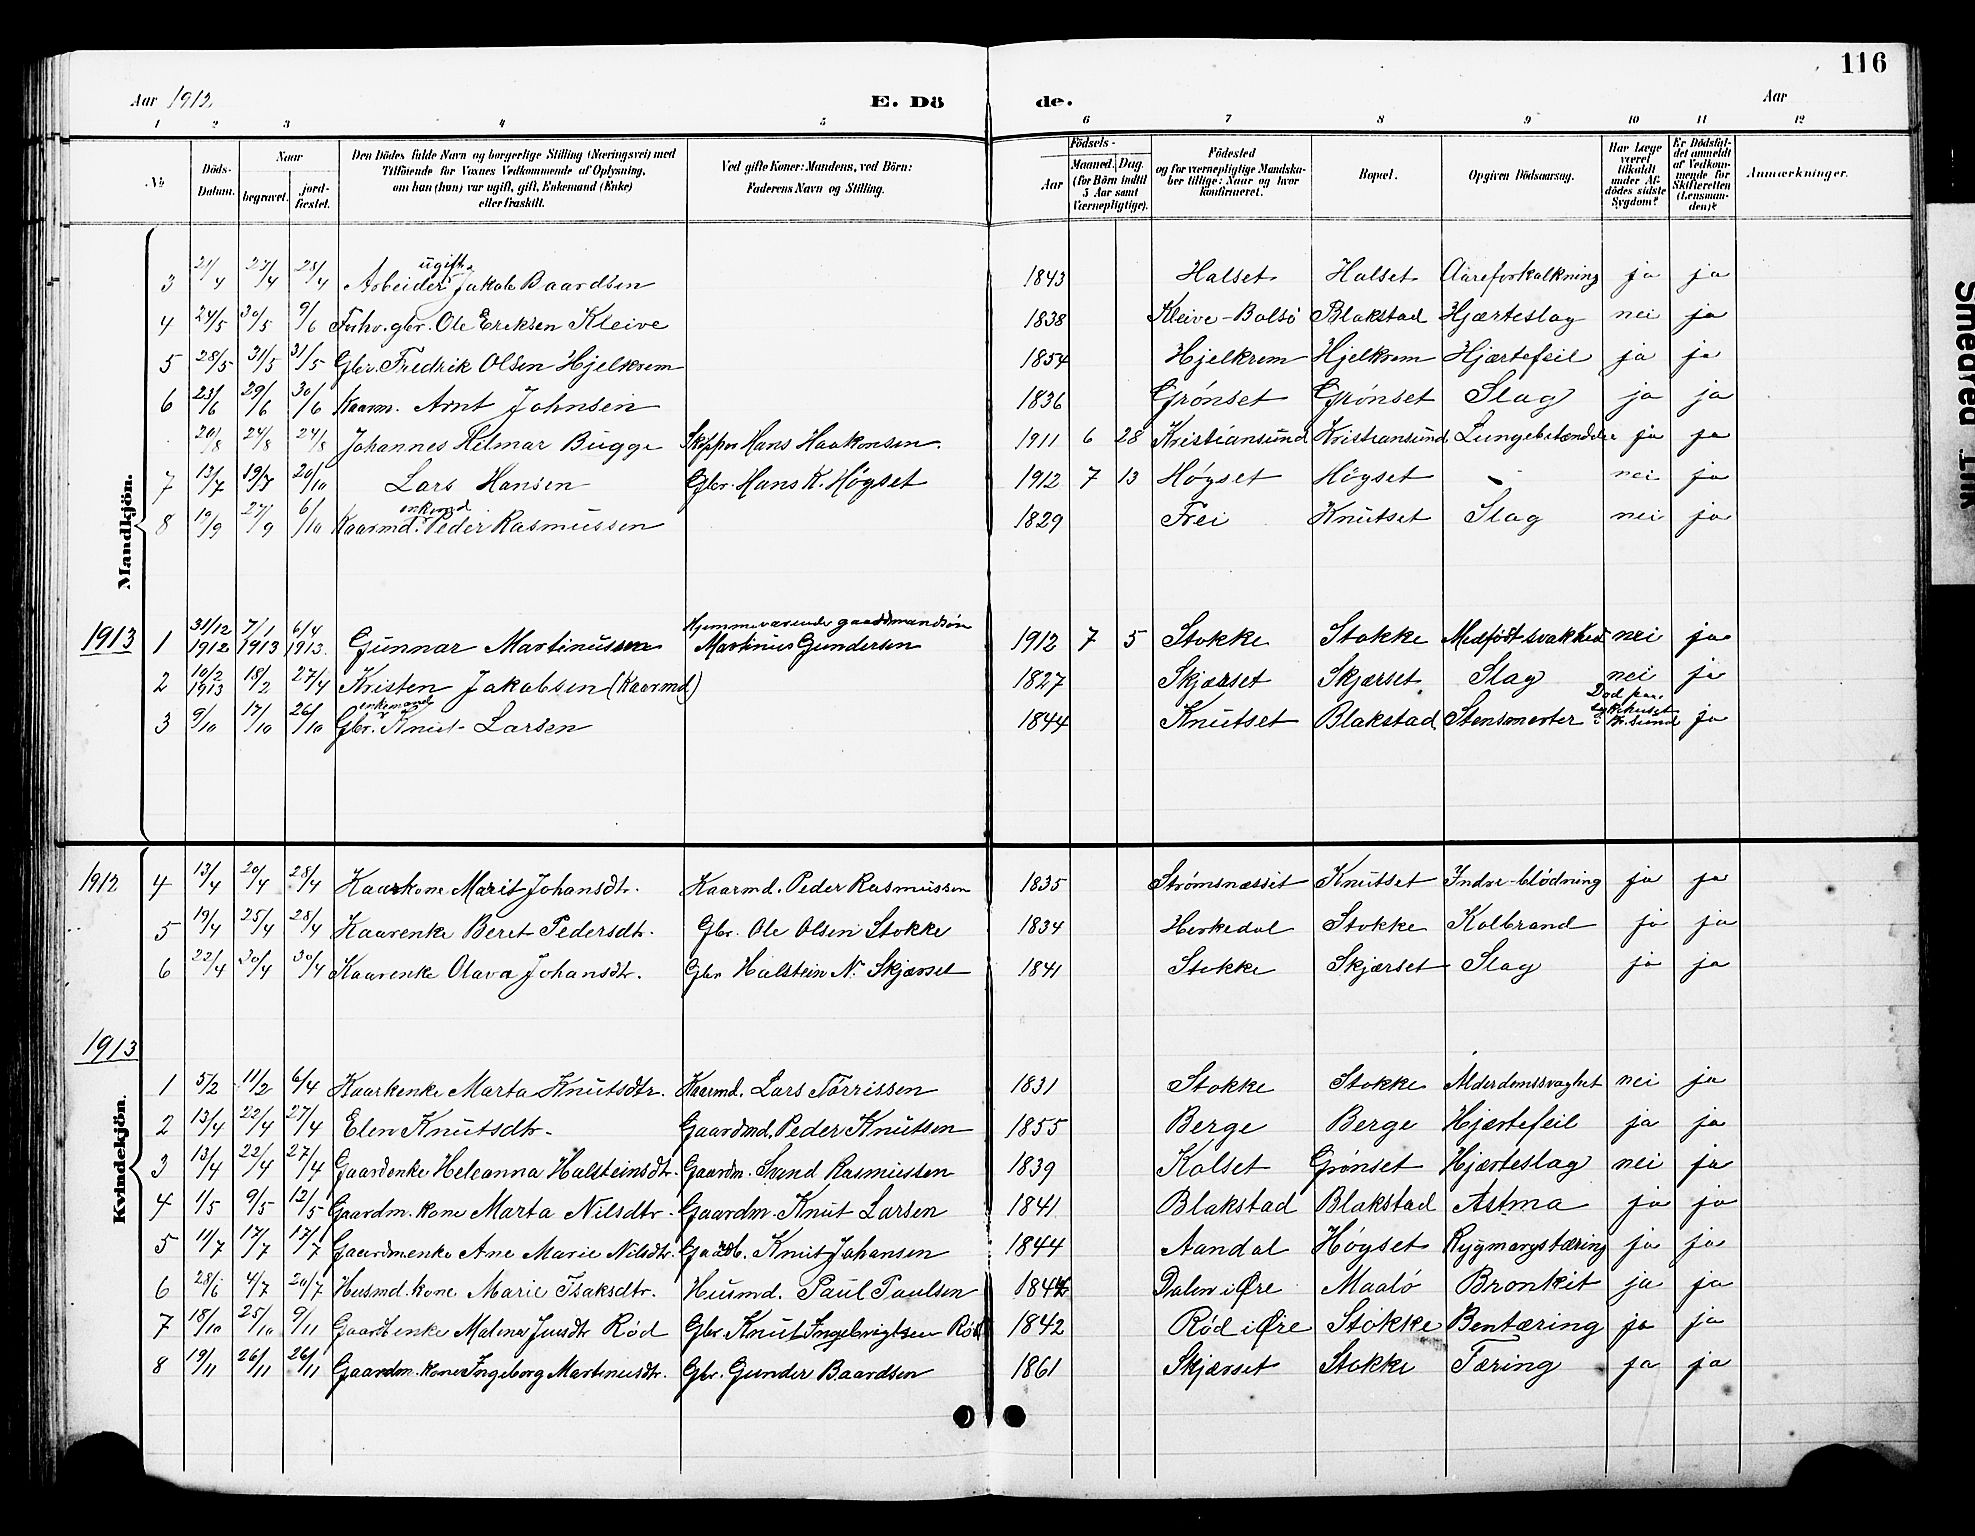 116
Aar 1912.
E. Dö de.
Aar
1 2 3 4 5 6 7 8 9 10 11 12
No
Döds-Datum.
Naar begravet. jordfæstet.
Den Dödes fulde Navn og borgerlige Stilling (Næringsvei) med
Tilföiende for Voxnes Vedkommende af Oplysning,
om han (hun) var ugift, gift, Enkemand (Enke)
eller fraskilt.
Ved gifte Koner: Mandens, ved Börn:
Faderens Navn og Stilling.
Födsels-
Aar
Maaned. Dag.
(for Börn indtil
5 Aar samt
Værnepligtige).
Födested
og for værnepligtige Mandskaber tillige: Naar og hvor
konfirmeret.
Bopæl.
Opgiven Dödsaarsag.
Har Læge været tilkaldt under Afdödes sidste Sygdom?
Er Dödsfaldet anmeldt af Vedkommende for Skifteretten (Lensmanden)?
Anmærkninger.
Mandkjön.
3 21/4 27/4 28/4 Arbeider ugift Jakob Baardsen 1843 Halset Halset Aareforkalkning ja ja
4 24/5 30/5 9/6 Forhv. gbr. Ole Eriksen Kleive 1838 Kleive-Bolsö Blakstad Hjærteslag nei ja
5 28/5 31/5 31/5 Gbr. Fredrik Olsen Hjelkrem 1854 Hjelkrem Hjelkrem Hjærtefeil ja ja
6 23/6 29/6 30/6 Kaarm. Arnt Johnsen 1836 Grønset Grønset Slag ja ja
20/8 24/8 24/8 Johannes Hilmar Bugge Skipper Hans Haakonsen. 1911 6 28 Kristiansund Kristiansund Lungebetændelse ja ja
7 13/7 19/7 20/10 Lars Hansen Gbr. Hans K. Høgset 1912 7 13 Høgset Høgset - nei ja
8 19/9 27/9 6/10 Kaarmd. enkemd Peder Rasmussen 1829 Frei Knutset Slag nei ja
1913 1 31/12 1912 7/1 1913 6/4 1913. Gunnar Martinussen Hjemmeværende gaardmandsøn Martinus Gundersen 1912 7 5 Stokke Stokke Medfödt svakhed nei ja
2 10/2 1913 18/2 27/4 Kristen Jakobsen (Kaarmd) 1827 Skjærset Skjærset Slag nei ja
3 9/10 17/10 26/10 Gbr. enkemand Knut Larsen 1844 Knutset Blakstad Stensmerter Död paa sykehuset i Kr.sund ja
Kvindekjön.
1912 4 13/4 20/4 28/4 Kaarkone Marit Johansdtr. Kaarmd. Peder Rasmussen 1835 Strømsnæsset Knutset Indre-blödning ja ja
5 19/4 25/4 28/4 Kaarenke Beret Pedersdtr. Gbr. Ole Olsen Stokke 1834 Herkedal Stokke Kolbrand ja ja
6 22/4 30/4 30/4 Kaarenke Olava Johansdtr. Gbr Halstein N. Skjærset 1841 Stokke Skjærset Slag ja ja
1913
1 5/2 11/2 6/4 Kaarkenke Marta Knutsdtr. Kaarmd. Lars Torrissen 1831 Stokke Stokke Alderdomssvaghet nei ja
2 13/4 22/4 27/4 Elen Knutsdtr. Gaardmd. Peder Knutsen 1855 Berge Berge Hjærtefeil ja ja
3 13/4 22/4 27/4 Gaardenke Heleanna Halsteinsdtr. Gaardm. Svend Rasmussen 1839 Kolset Grønset Hjærteslag nei ja
4 1/5 9/5 12/5 Gaardm. kone Marta Nilsdtr. Gaardm. Knut Larsen 1841 Blakstad Blakstad Astma ja ja
5 11/7 17/7 17/7 Gaardmenke Ane Marie Nilsdtr. Gaardb. Knut Johansen 1844 Aandal Høgset Rygmargstæring ja ja
6 28/6 4/7 20/7 Husmd. kone Marie Isaksdtr. Husmd. Paul Paulsen 1844 Dalen i Øre Maalö Bronkit ja ja
7 18/10 25/10 9/11 Gaardbenke Malena Jensdtr Rød Gbr. Knut Ingebrigtsen Rød 1842 Rød i Øre Stokke Bentæring ja ja
8 19/11 26/11 26/11 Gaardm. kone Ingeborg Martinusdtr. Gbr. Gunder Baardsen 1861 Skjærset Stokke Tæring ja ja